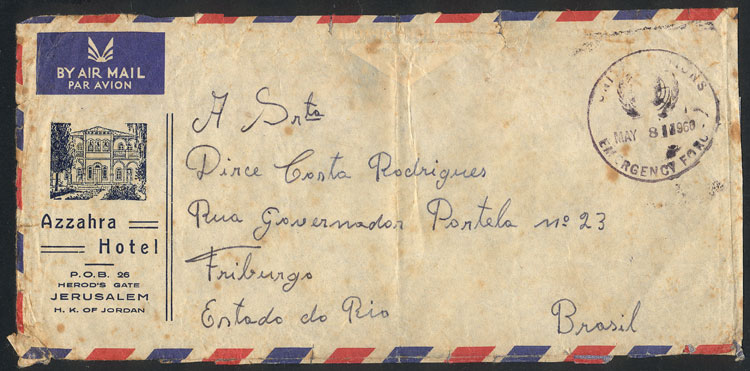 BY AIR MAIL
PAR AVION
Azzahra
Hotel
P.O.B. 26
HEROD'S GATE
JERUSALEM
H. K. OF JORDAN
A Srta
Dirce Costa Rodrigues
Rua Governador Portela nº 23
Friburgo
Estado do Rio
Brasil
MAY 8 1960
EMERGENCY FORCE